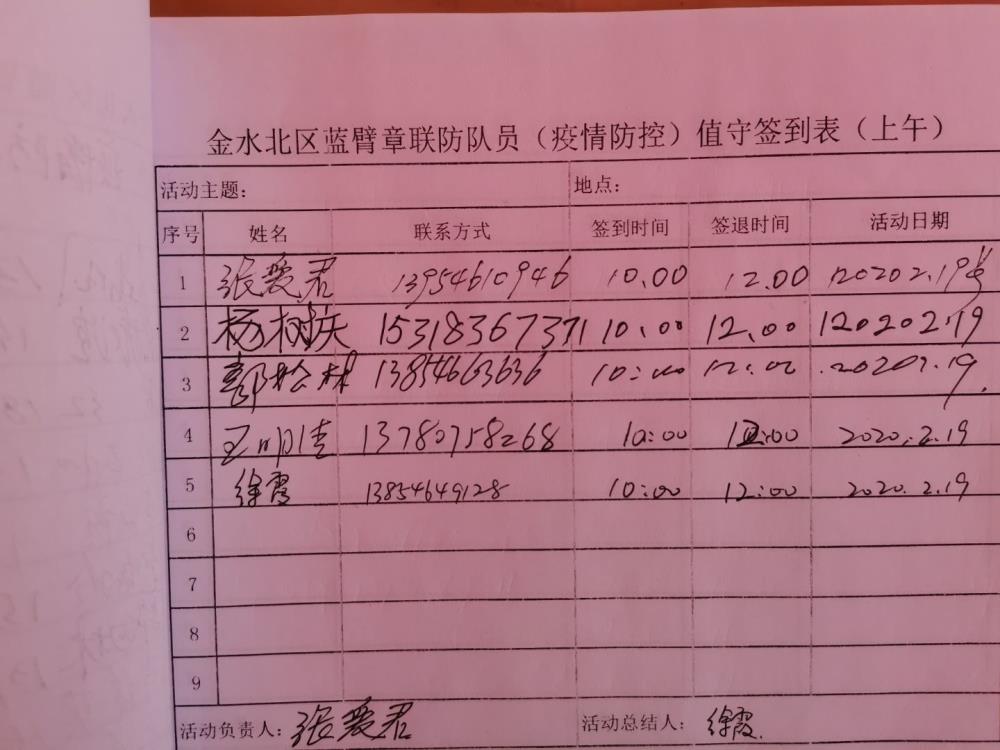 金水北区蓝臂章联防队员（疫情防控）值守签到表（上午）
活动主题： 地点：
序号 姓名 联系方式 签到时间 签退时间 活动日期
1 张爱君 13954610946 10.00 12.00 2020 2.19号
2 杨树庆 15318367371 10.00 12.00 2020 2.19
3 13854663636 10:00 12:00 2020 2.19.
4 王明佳 13780758268 10:00 12:00 2020.2.19
5 徐霞 13854649128 10:00 12:00 2020.2.19
6
7
8
9
活动负责人：张爱君 活动总结人：徐霞.